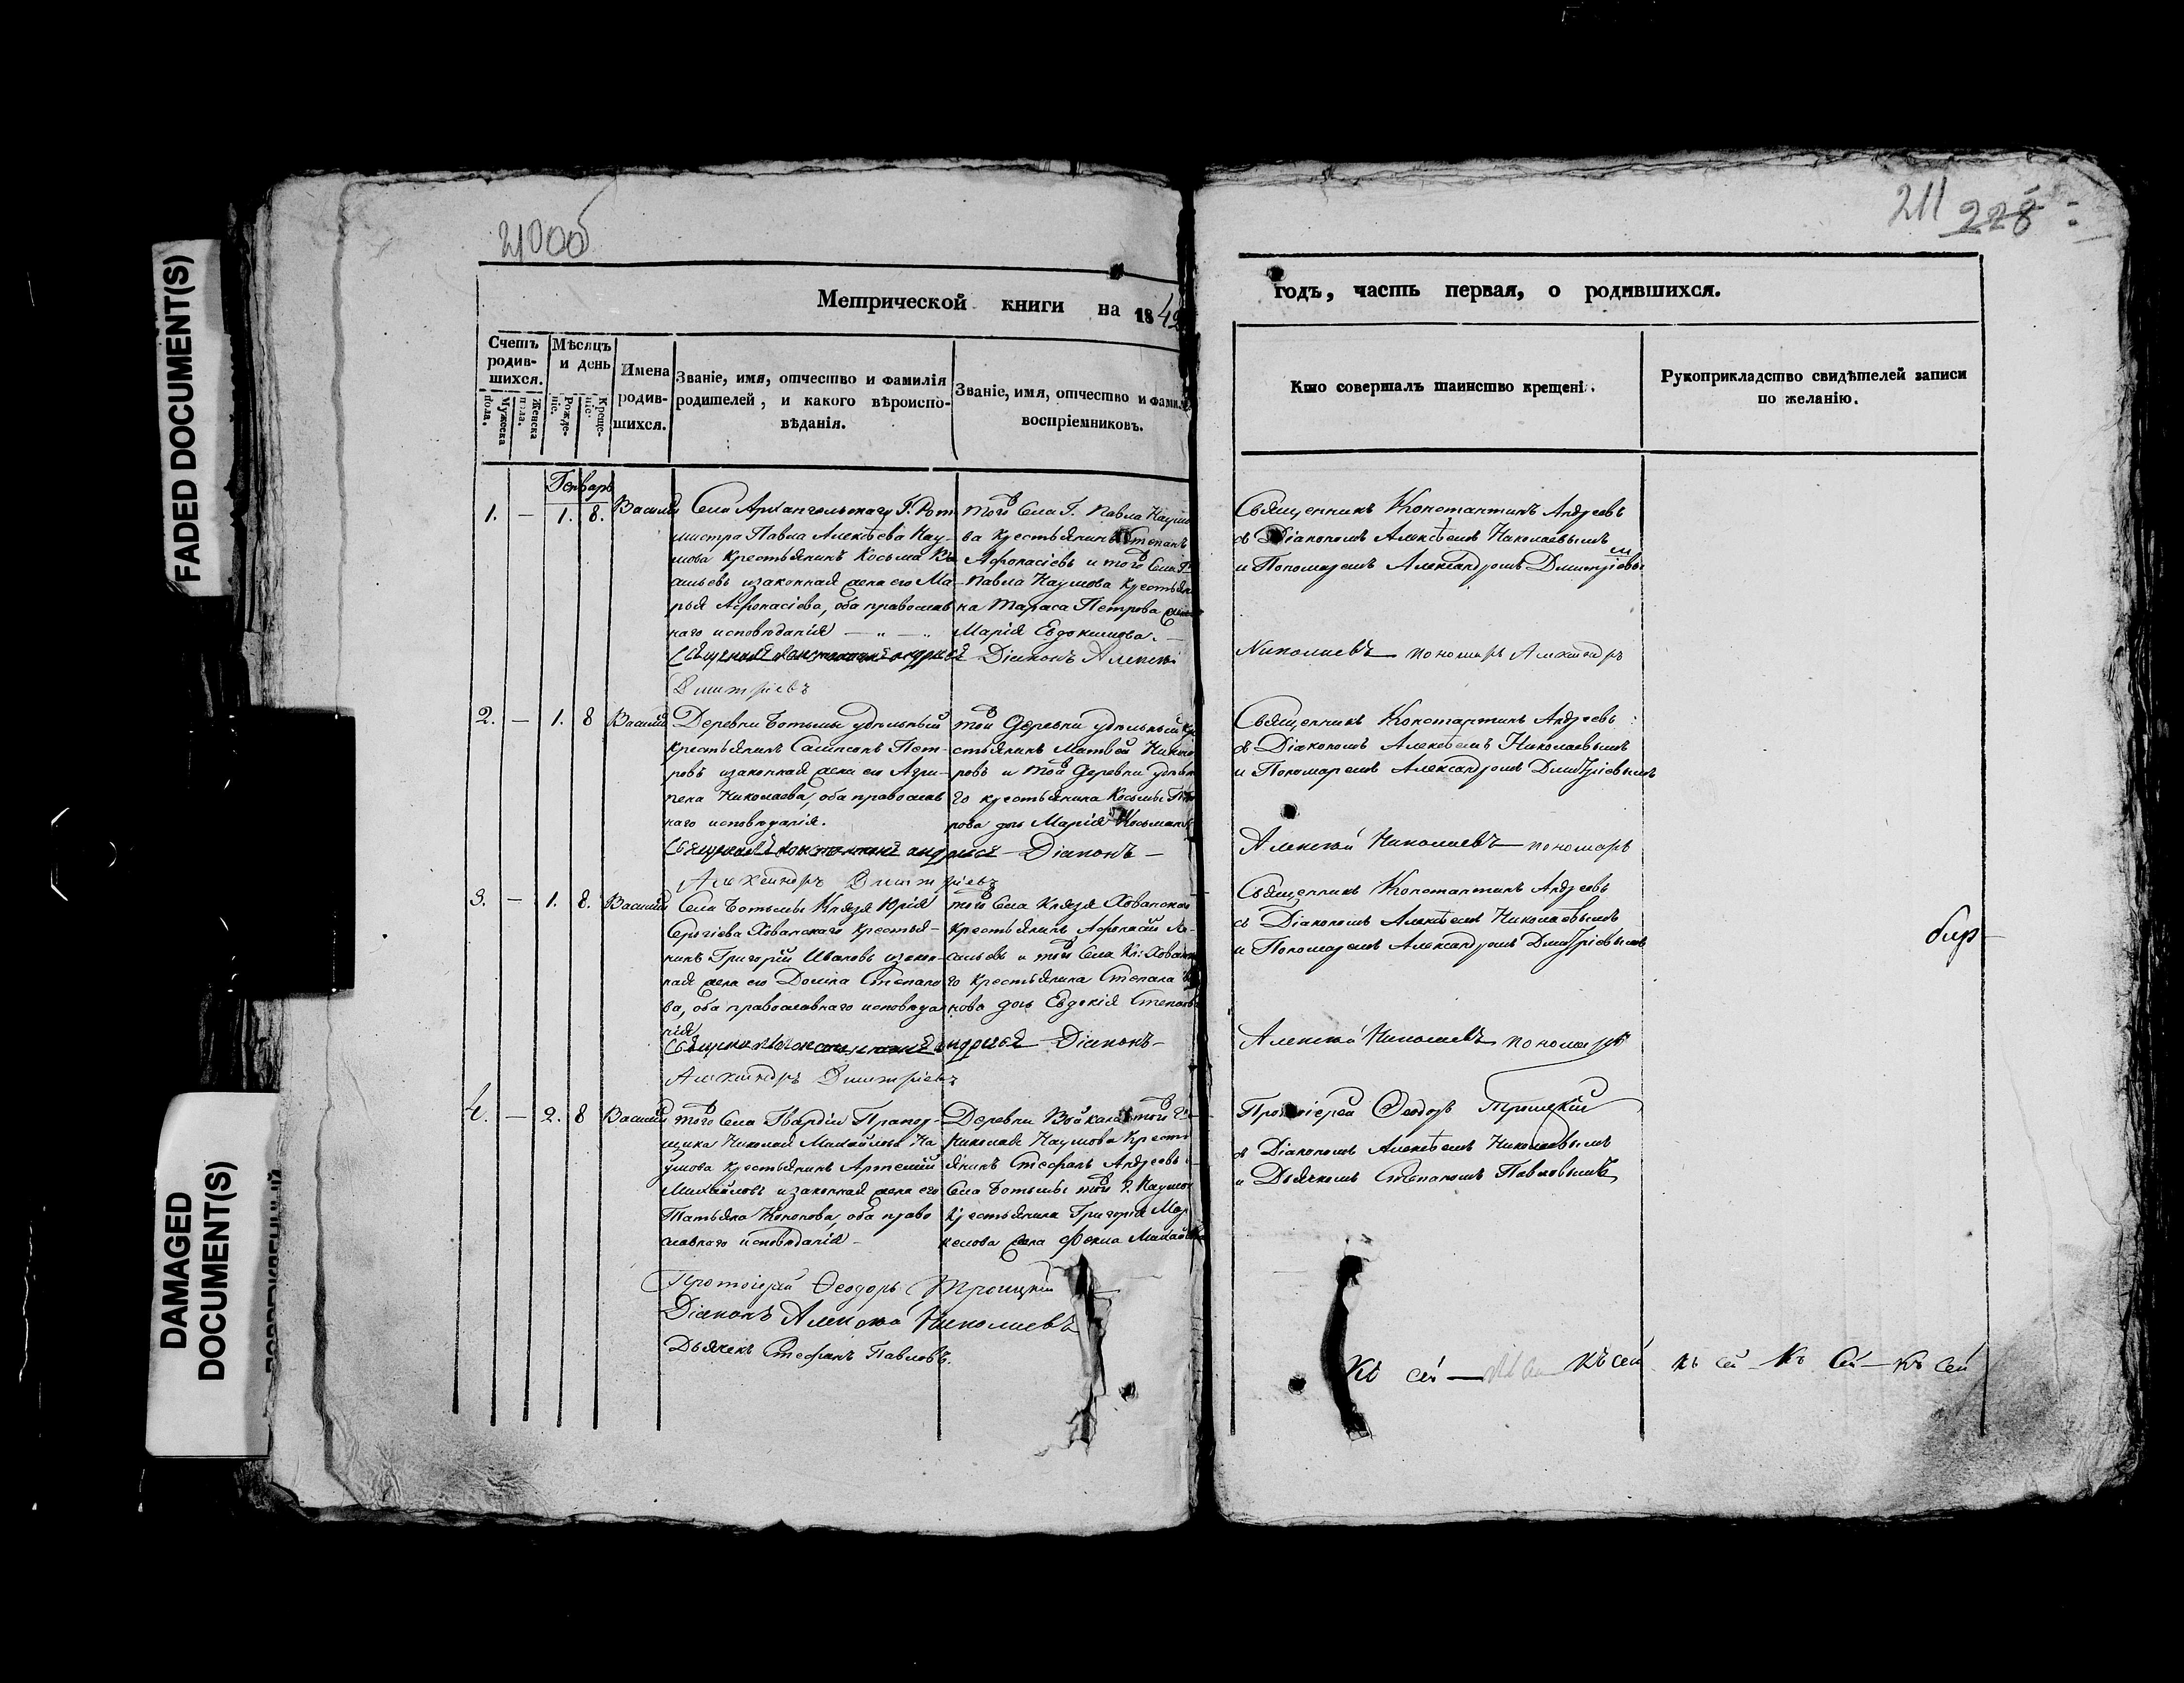 FADED DOCUMENT(S)
DAMAGED
DOCUMENT(S)
211
228
Метрической книги на 1842
годъ, часть первая, о родившихся.
Счетъ родившихся.
Мужеска пола.
Женска пола.
Мѣсяцъ и день
Рожденіе.
Крещеніе.
Имена родившихся.
Званіе, имя, отчество и фамилія родителей, и какого вѣроисповѣданія.
Званіе, имя, отчество и фамил
воспріемниковъ.
Кто совершалъ таинство крещені.
Рукоприкладство свидѣтелей записи по желанію.
Генварь
1. — 1. 8. Василій
Села Архангельскаго Г. Рот-
мистра Павла Алексѣева Нау-
мова крестьянинъ Косьма Ва
сильевъ изаконная жена его Ма-
рья Афонасіева, оба православ
наго исповѣданія
того Села Г. Павла Наумо
ва крестьянинъ Степанъ
Афонасіевъ и того Села Г.
Павла Наумова крестьян
на Тараса Петрова жена
Марія Евдокимова.
Священникъ Константинъ Андреевъ
съ Діакономъ Алексѣемъ Николаевымъ
и Пономаремъ Александромъ Дмитріевы
м
Священникъ Константинъ Андреевъ Діаконъ Алексѣй
Николаевъ пономарь Александръ
Дмитріевъ
2. — 1. 8 Василій
Деревни Ботьмы удѣльный
крестьянинъ Самсонъ Пет-
ровъ изаконная жена его Агри-
пена Николаева, оба православ
наго исповѣданія.
той Деревни удѣльный кре
стьянинъ Матвей Никифо
ровъ и той Деревни удѣльна
го крестьянина Косьмы Пет
рова дочь Марія Косьмина
Священникъ Константинъ Андреевъ
съ Діакономъ Алексѣемъ Николаевымъ
и Пономаремъ Александромъ Дмитріевымъ
Священникъ Константинъ Андреевъ — Діаконъ —
Алексѣй Николаевъ — пономарь
Александръ Дмитріевъ
3. — 1. 8. Василій
Села Ботьмы Князя Юрія
Сергіева Хованскаго крестья-
нинъ Григорій Ивановъ изакон-
ная жена его Домна Степано
ва, оба православнаго исповѣда
нія
того Села Князя Хованскаго
крестьянинъ Афонасій
и того Села Кн: Хованска
го крестьянина Степана
нова дочь Евдокія Степанова
Священникъ Константинъ Андреевъ
съ Діакономъ Алексѣемъ Николаевымъ
и Пономаремъ Александромъ Дмитріевымъ
Священникъ Константинъ Андреевъ Діаконъ —
Алексѣй Николаевъ пономарь
Александръ Дмитріевъ
4. — 2. 8 Василій
того Села Гвардіи Прапор-
щика Николая Михайлова На
умова крестьянинъ Артемій
Михайловъ изаконная жена его
Татьяна Кононова, оба право
славнаго исповѣданія —
Деревни
Николая Наумова кресть
янинъ Стефанъ Андреевъ
Села Ботьмы того Г. Наумов
крестьянина Григорія Мар
келова жена Фекла Михайлова
Протоіерей Ѳеодоръ Троицкій
съ Діакономъ Алексѣемъ Николаевымъ
и Дьячкомъ Степаномъ Павловымъ
Протоіерей Ѳеодоръ Троицкій
Діаконъ Алексѣй Николаевъ
Дьячекъ Стефанъ Павловъ.
Къ сей — къ сей къ сей — Къ Сей — къ сей